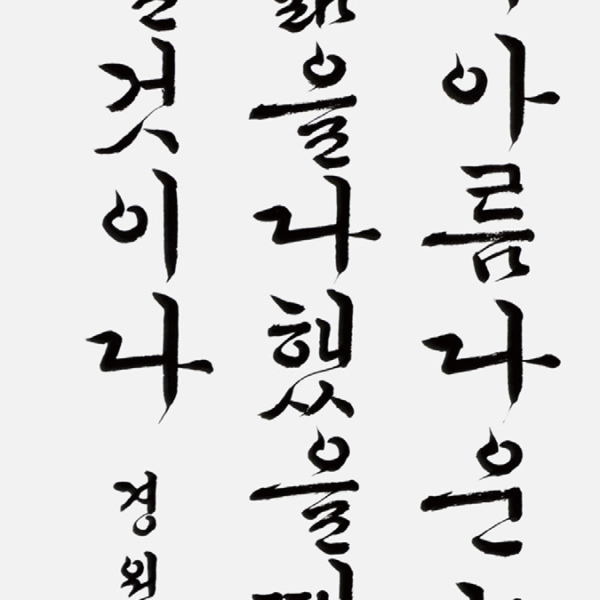 아름다운
을다했을
것이다
경